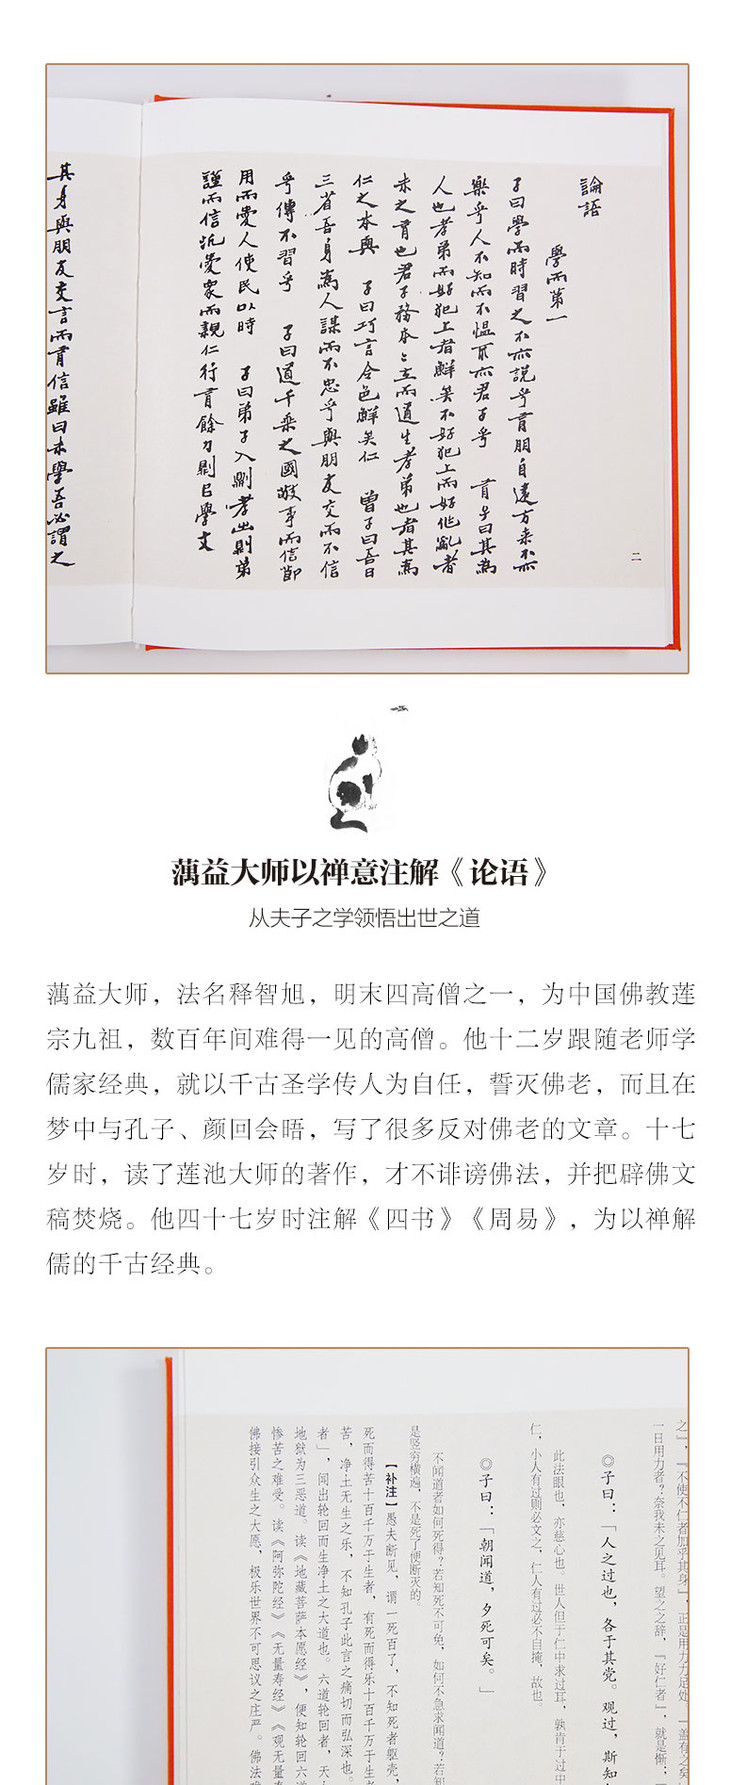 論語
學而第一
子曰學而時習之不亦說乎有朋自遠方來不亦
樂乎人不知而不慍不亦君子乎 有子曰其為
人也孝弟而好犯上者鮮矣不好犯上而好作亂者
未之有也君子務本本立而道生孝弟也者其為
仁之本與 子曰巧言令色鮮矣仁 曾子曰吾日
三省吾身為人謀而不忠乎與朋友交而不信
乎傳不習乎 子曰道千乘之國敬事而信節
用而愛人使民以時 子曰弟子入則孝出則弟
謹而信汎愛眾而親仁行有餘力則以學文
其身與朋友交言而有信雖曰未學吾必謂之
二
蕅益大师以禅意注解《论语》
从夫子之学领悟出世之道
蕅益大师，法名释智旭，明末四高僧之一，为中国佛教莲
宗九祖，数百年间难得一见的高僧。他十二岁跟随老师学
儒家经典，就以千古圣学传人为自任，誓灭佛老，而且在
梦中与孔子、颜回会晤，写了很多反对佛老的文章。十七
岁时，读了莲池大师的著作，才不诽谤佛法，并把辟佛文
稿焚烧。他四十七岁时注解《四书》《周易》，为以禅解
儒的千古经典。
之』，『不使不仁者加乎其身』，正是用力力足处。『盖有之矣
一日用力者？奈我未之见耳。望之之辞，『好仁者』，就是惭：
◎子曰：「人之过也，各于其党。观过，斯知
此法眼也，亦慈心也。世人但于仁中求过耳，孰肯于过中
仁，小人有过则必文之，仁人有过必不自掩，故也。
◎子曰：「朝闻道，夕死可矣。」
不闻道者如何死得？若知死不可免，如何不急求闻道？若知
是竖穷横遍，不是死了便断灭的。
【补注】愚夫断见，谓一死百了，不知死者躯壳，
死而得苦十百千万于生者，有死而得乐十百千万于生者
苦，净土无生之乐，不知孔子此言之痛切而弘深也。
者」，闻出轮回而生净土之大道也。六道轮回者，天
地狱为三恶道。读《地藏菩萨本愿经》，便知轮回六道
惨苦之难受。读《阿弥陀经》《无量寿经》《观无量
佛接引众生之大愿，极乐世界不可思议之庄严。佛法